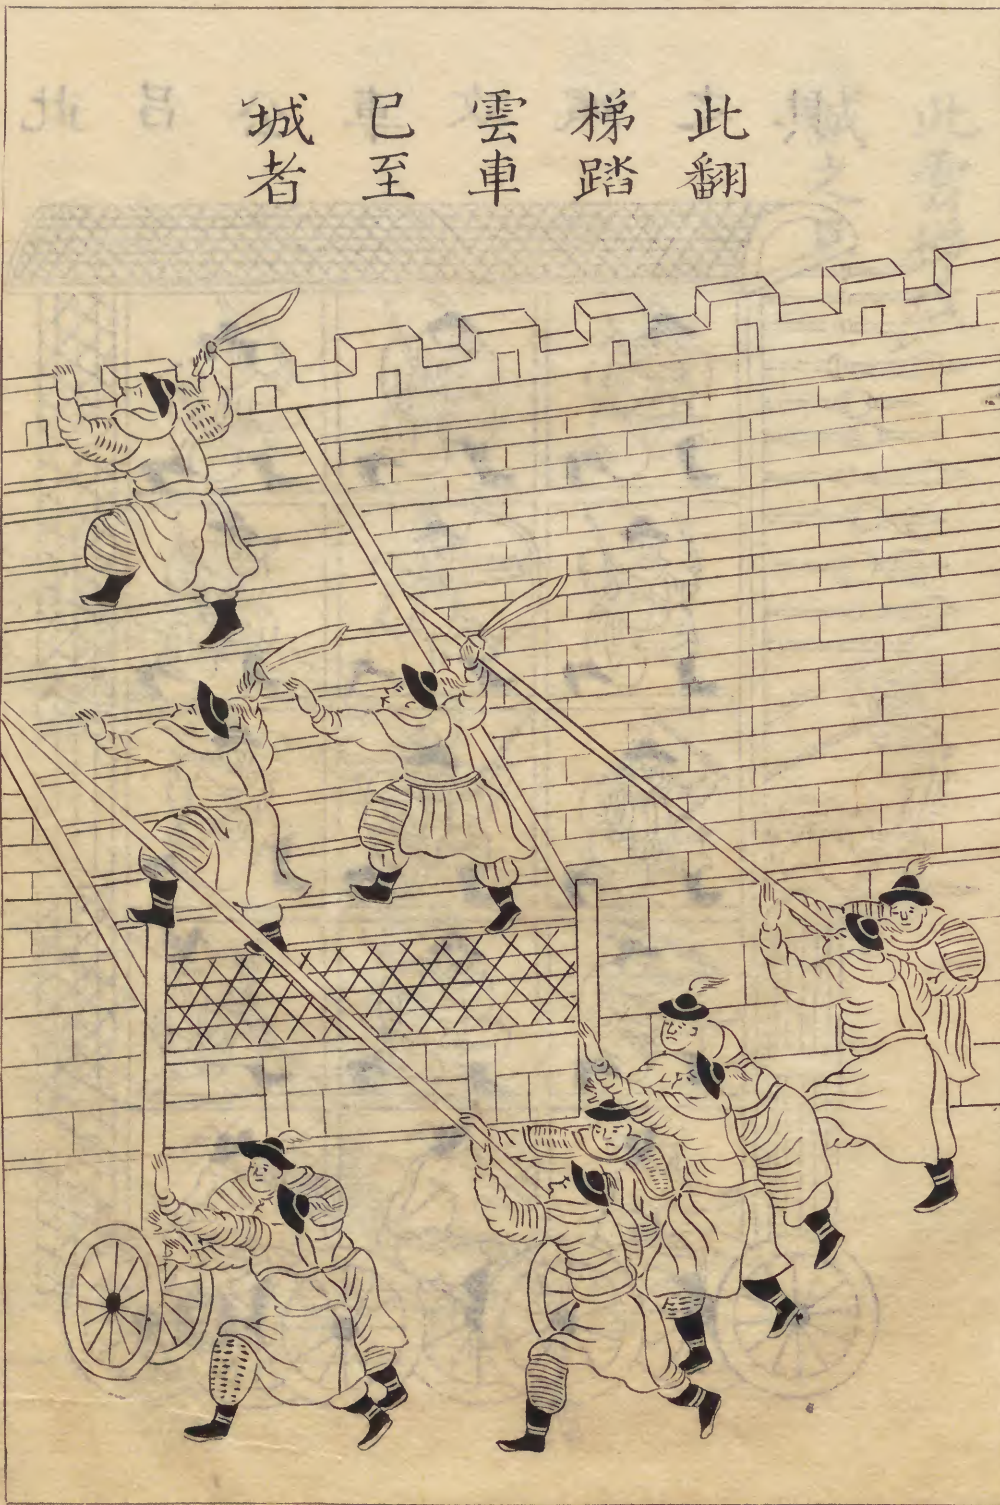 此翻
梯踏
雲車
已至
城者